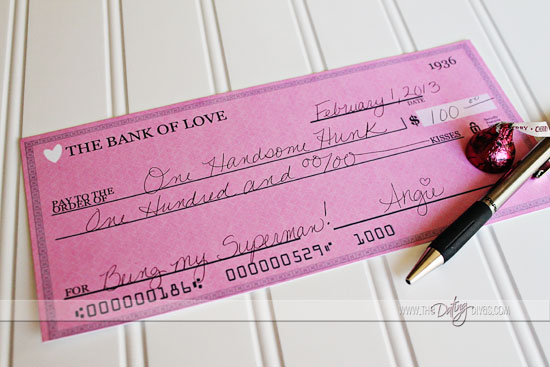 1936
THE BANK OF LOVE
February 1, 2013
DATE
PAY TO THE
ORDER OF
One Handsome Hunk
$ 100.00
One Hundred and 00/00
KISSES.
FOR
Being my Superman!
Angie
000000186 000000529 1000
WWW.THE Dating DIVAS.COM